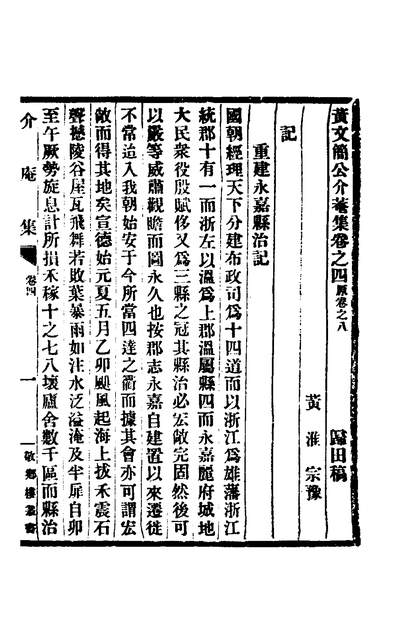 黃文簡公介菴集卷之四原卷之八　歸田稿
黃　淮　宗豫
記
重建永嘉縣治記
國朝經理天下分建布政司爲十四道而以浙江爲雄藩浙江
統郡十有一而浙左以溫爲上郡溫屬縣四而永嘉麗府城地
大民衆役殷賦侈又爲三縣之冠其縣治必宏敞完固然後可
以嚴等威肅觀瞻而圖永久也按郡志永嘉自建置以來遷徙
不常迨入我朝始安于今所當四達之衢而據其會亦可謂宏
敞而得其地矣宣德始元夏五月乙卯颶風起海上拔禾震石
聲撼陵谷屋瓦飛舞若敗葉暴雨如注水泛溢淹及半扉自卯
至午厥勢旋息計所損禾稼十之七八壞廬舍數千區而縣治
介庵集
卷四
一
敬鄉樓叢書